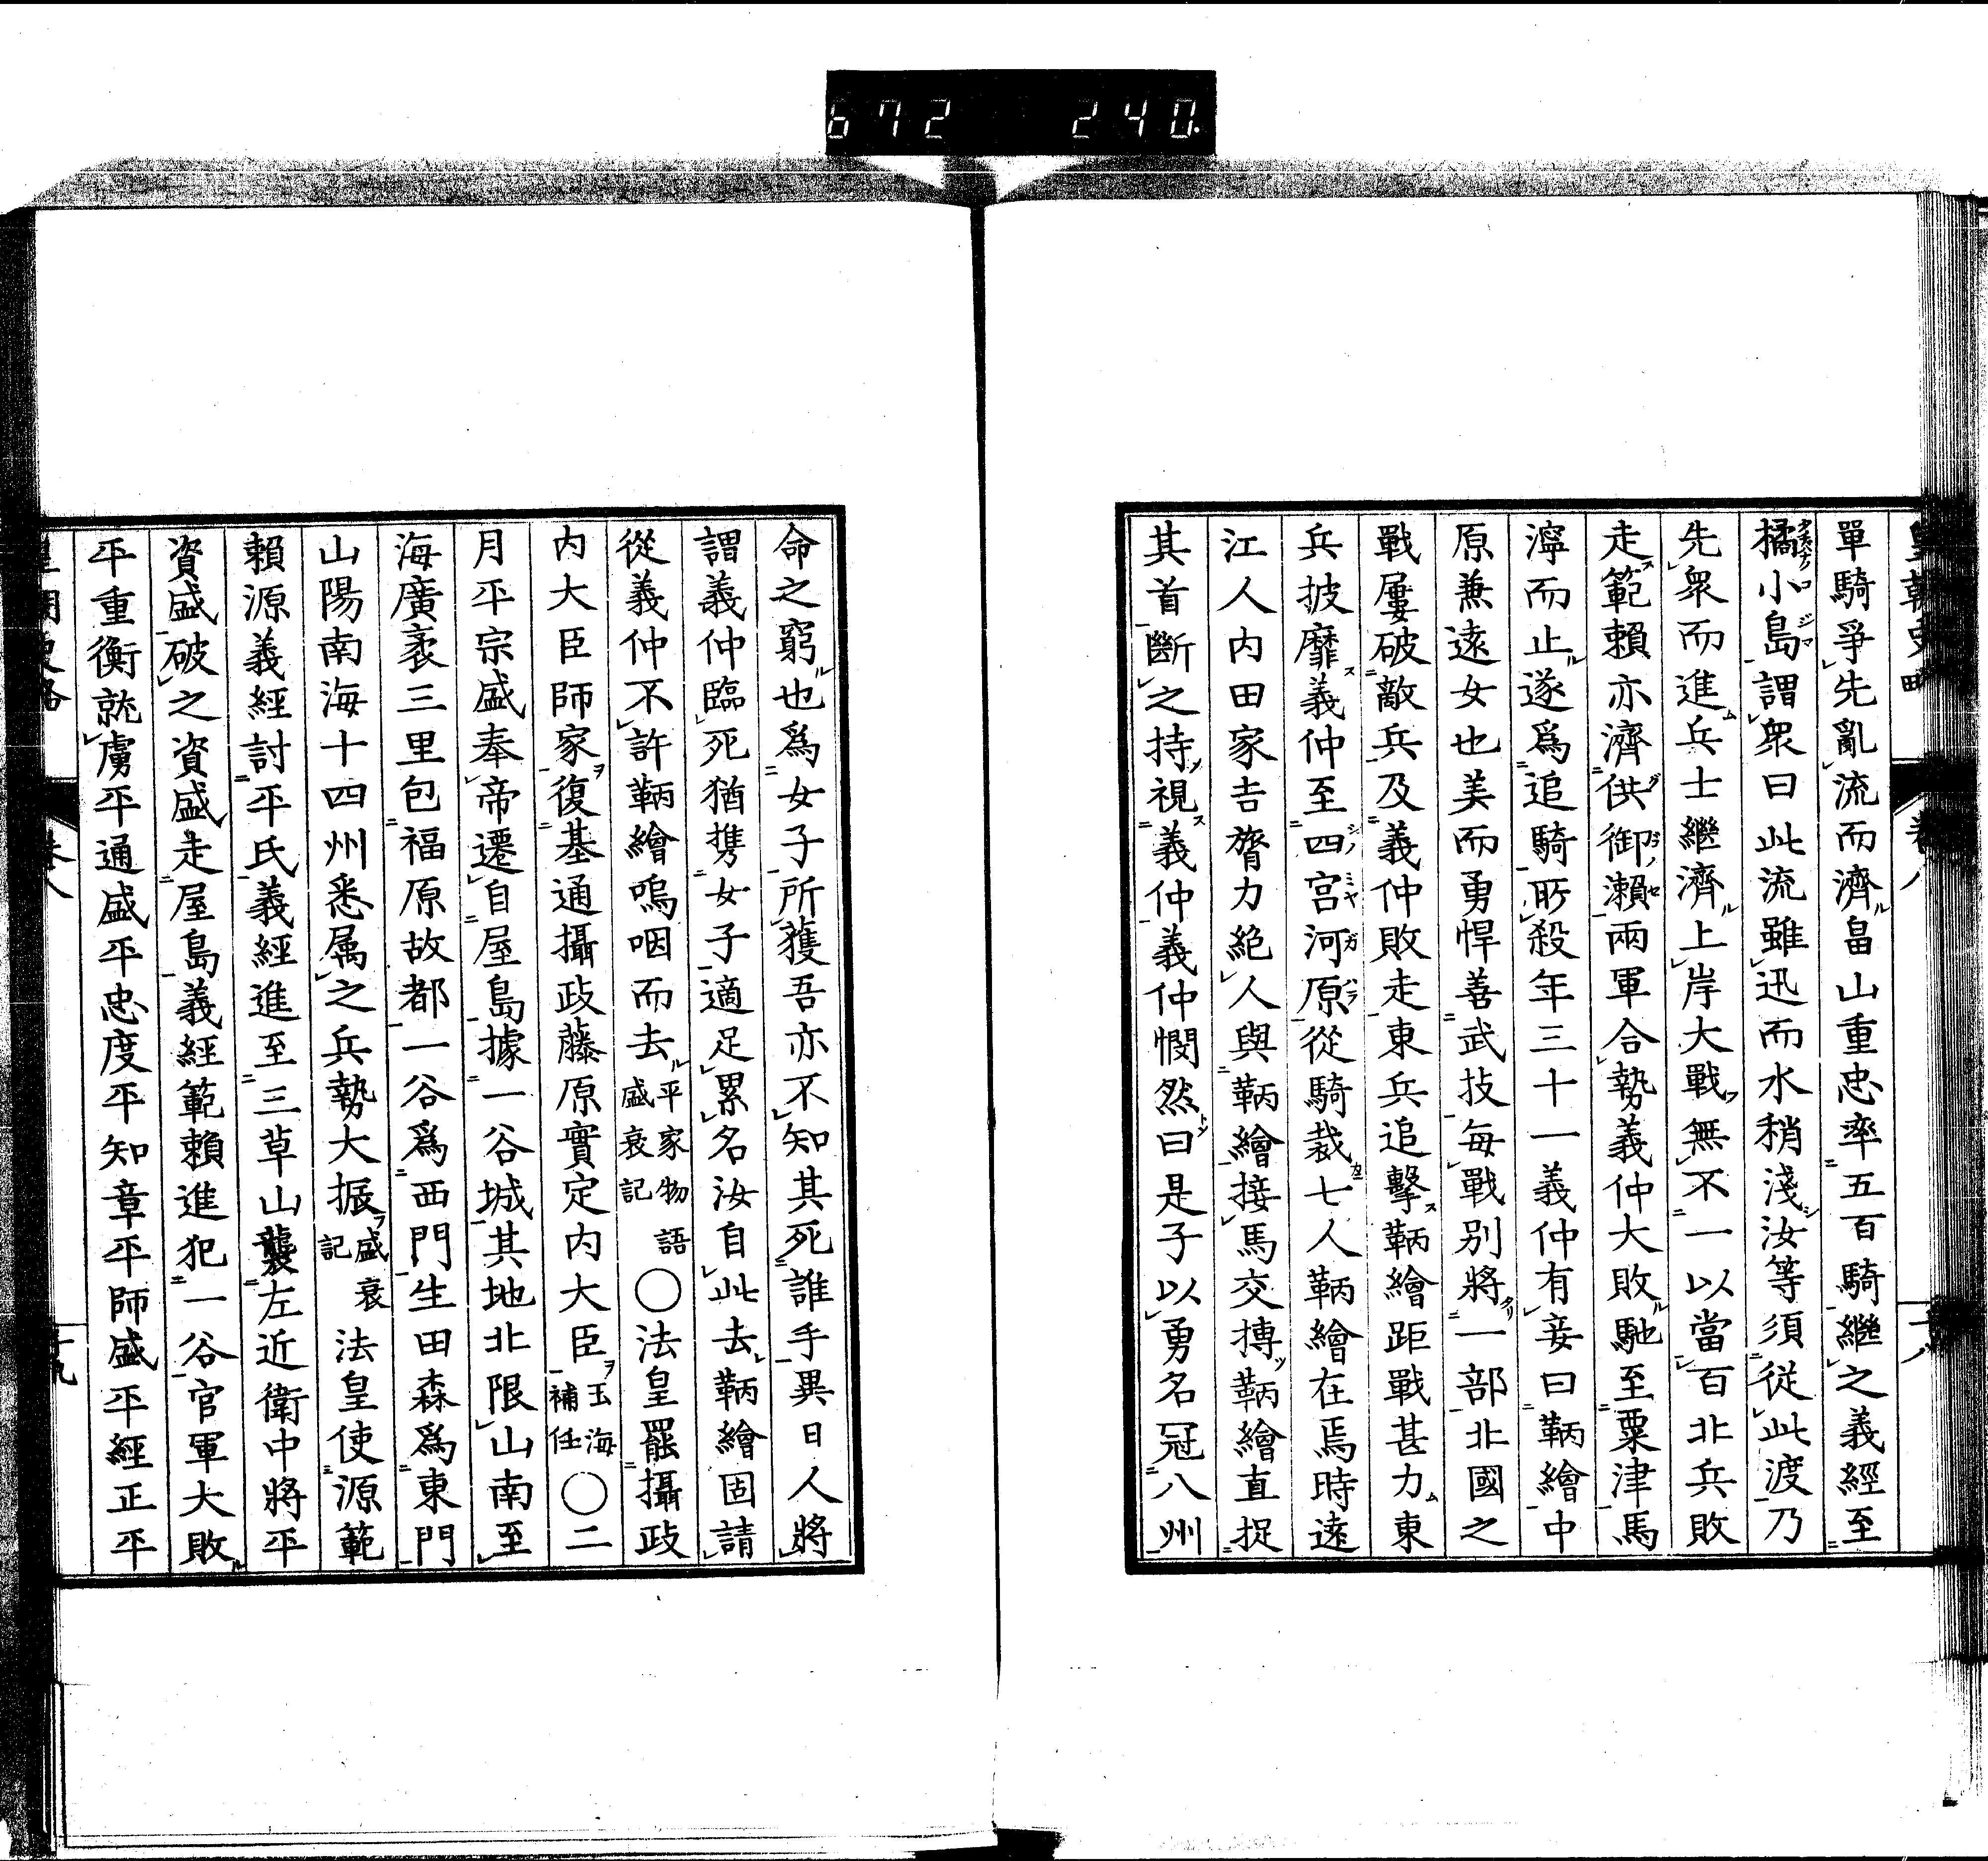 672 240
皇朝史略 卷八 十八
單騎爭先亂流而濟畠山重忠率五百騎繼之義經至
橘小島謂衆曰此流雖迅而水稍淺汝等須從此渡乃
先衆而進兵士繼濟上岸大戰無不一以當百北兵敗
走範賴亦濟供御瀨兩軍合勢義仲大敗馳至粟津馬
濘而止遂爲追騎所殺年三十一義仲有妾曰鞆繪中
原兼遠女也美而勇悍善武技每戰別將一部北國之
戰屢破敵兵及義仲敗走東兵追擊鞆繪距戰甚力東
兵披靡義仲至四宮河原從騎裁七人鞆繪在焉時遠
江人內田家吉膂力絶人與鞆繪接馬交搏鞆繪直捉
其首斷之持視義仲義仲憫然曰是子以勇名冠八州
命之窮也爲女子所獲吾亦不知其死誰手異日人將
謂義仲臨死猶携女子適足累名汝自此去鞆繪固請
從義仲不許鞆繪嗚咽而去平家物語盛衰記〇法皇罷攝政
內大臣師家復基通攝政藤原實定內大臣玉海補任〇二
月平宗盛奉帝遷自屋島據一谷城其地北限山南至
海廣袤三里包福原故都一谷爲西門生田森爲東門
山陽南海十四州悉属之兵勢大振盛衰記法皇使源範
賴源義經討平氏義經進至三草山襲左近衛中將平
資盛破之資盛走屋島義經範賴進犯一谷官軍大敗
平重衡就虜平通盛平忠度平知章平師盛平經正平
皇朝史略 卷八 十九